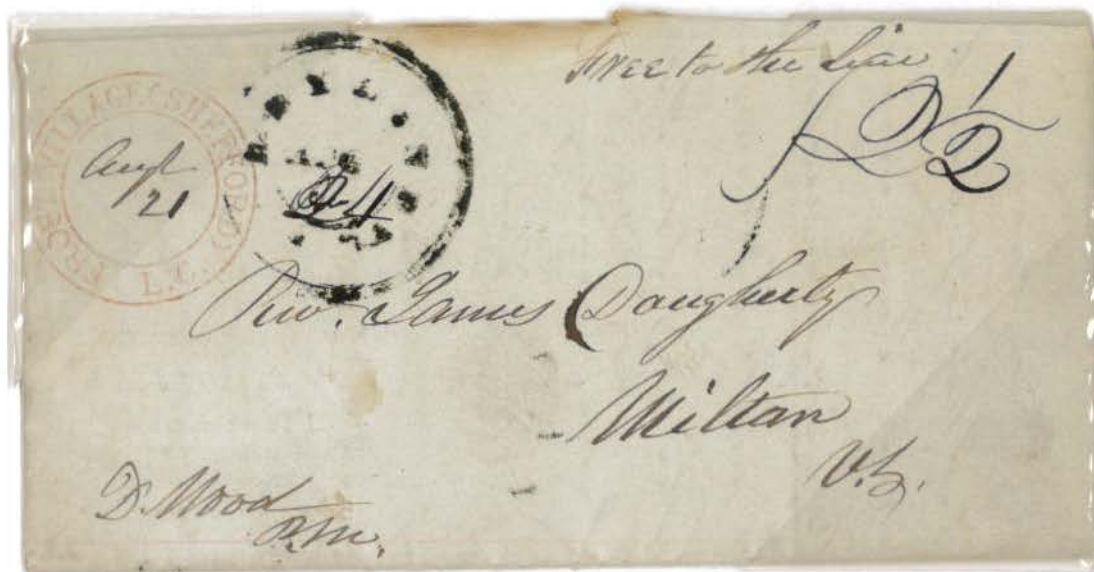 Free to the Line
FROST VILLAGE (SHEFFORD)
L.C.
Augt
21
24
Rev. James Dougherty
Milton
Vt.
D. Wood
P.M.